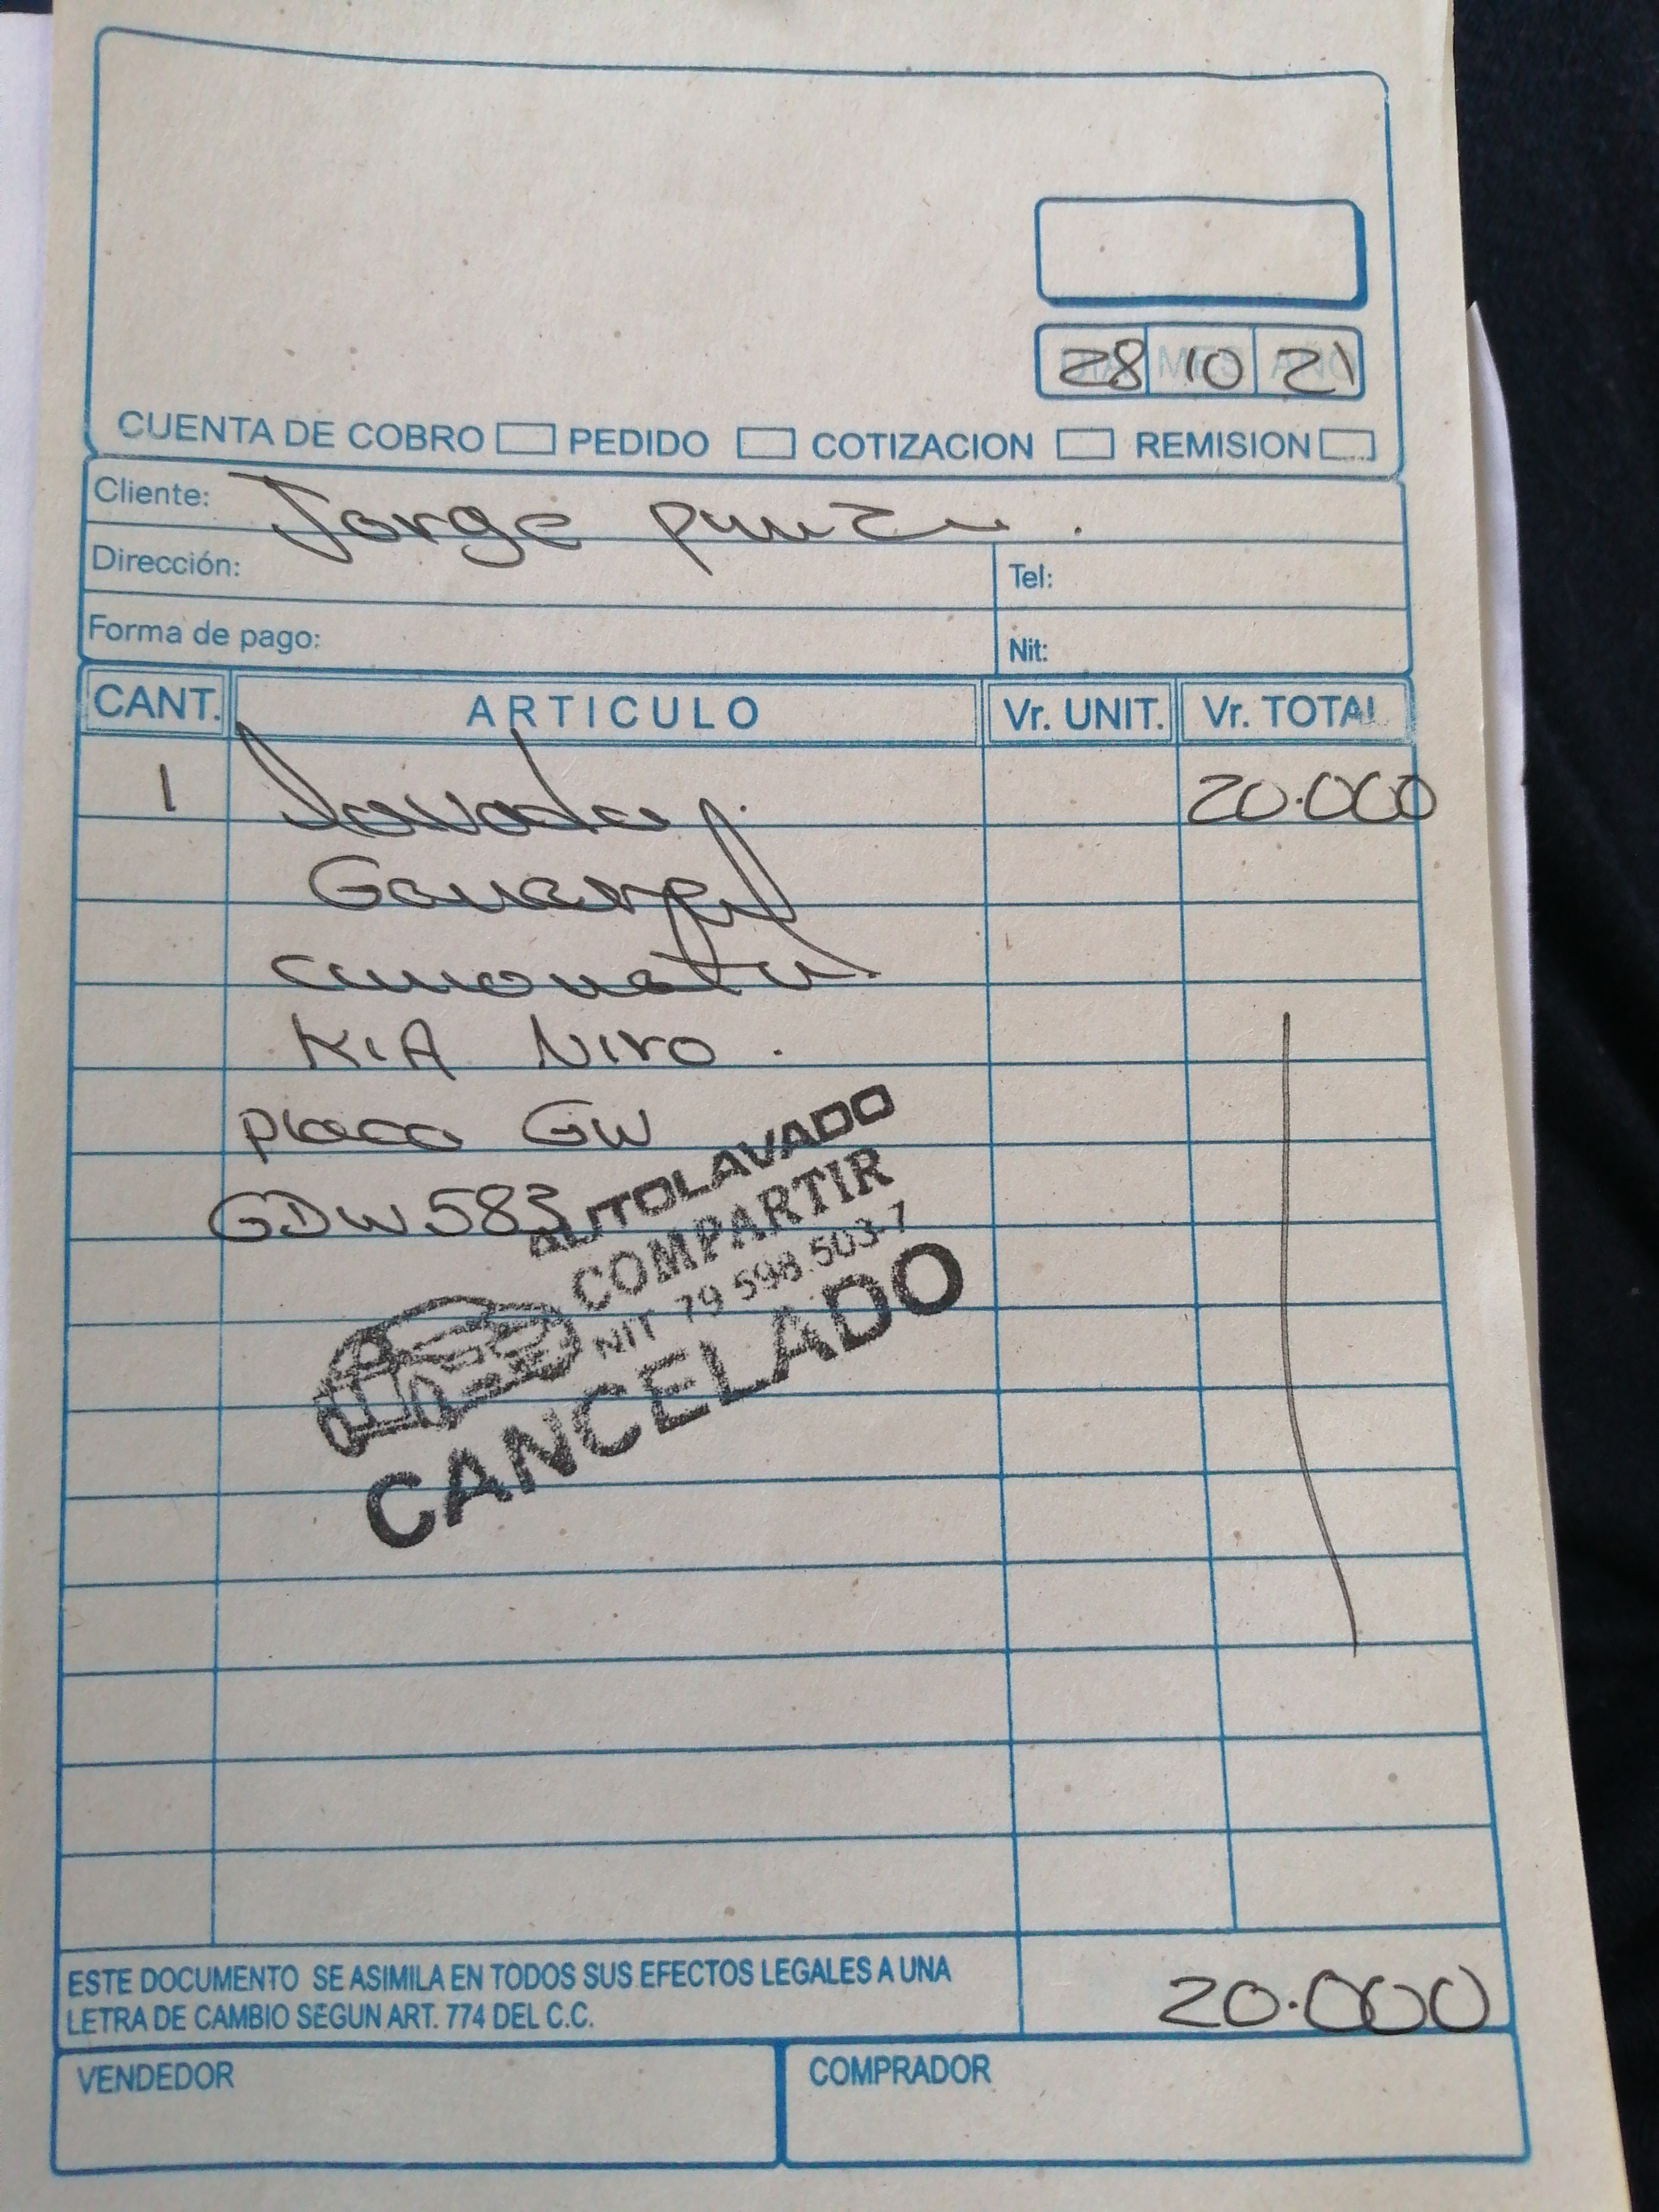 28 10 21
CUENTA DE COBRO PEDIDO COTIZACION REMISION
Cliente: Jorge
Dirección: Tel:
Forma de pago: Nit:
CANT. ARTICULO Vr. UNIT. Vr. TOTAL
1 Lavada 20.000
General
camioneta.
KIA Niro.
placa GW
GDW583
AUTOLAVADO
COMPARTIR
NIT 79.598.503-7
CANCELADO
ESTE DOCUMENTO SE ASIMILA EN TODOS SUS EFECTOS LEGALES A UNA
LETRA DE CAMBIO SEGUN ART. 774 DEL C.C. 20.000
VENDEDOR COMPRADOR